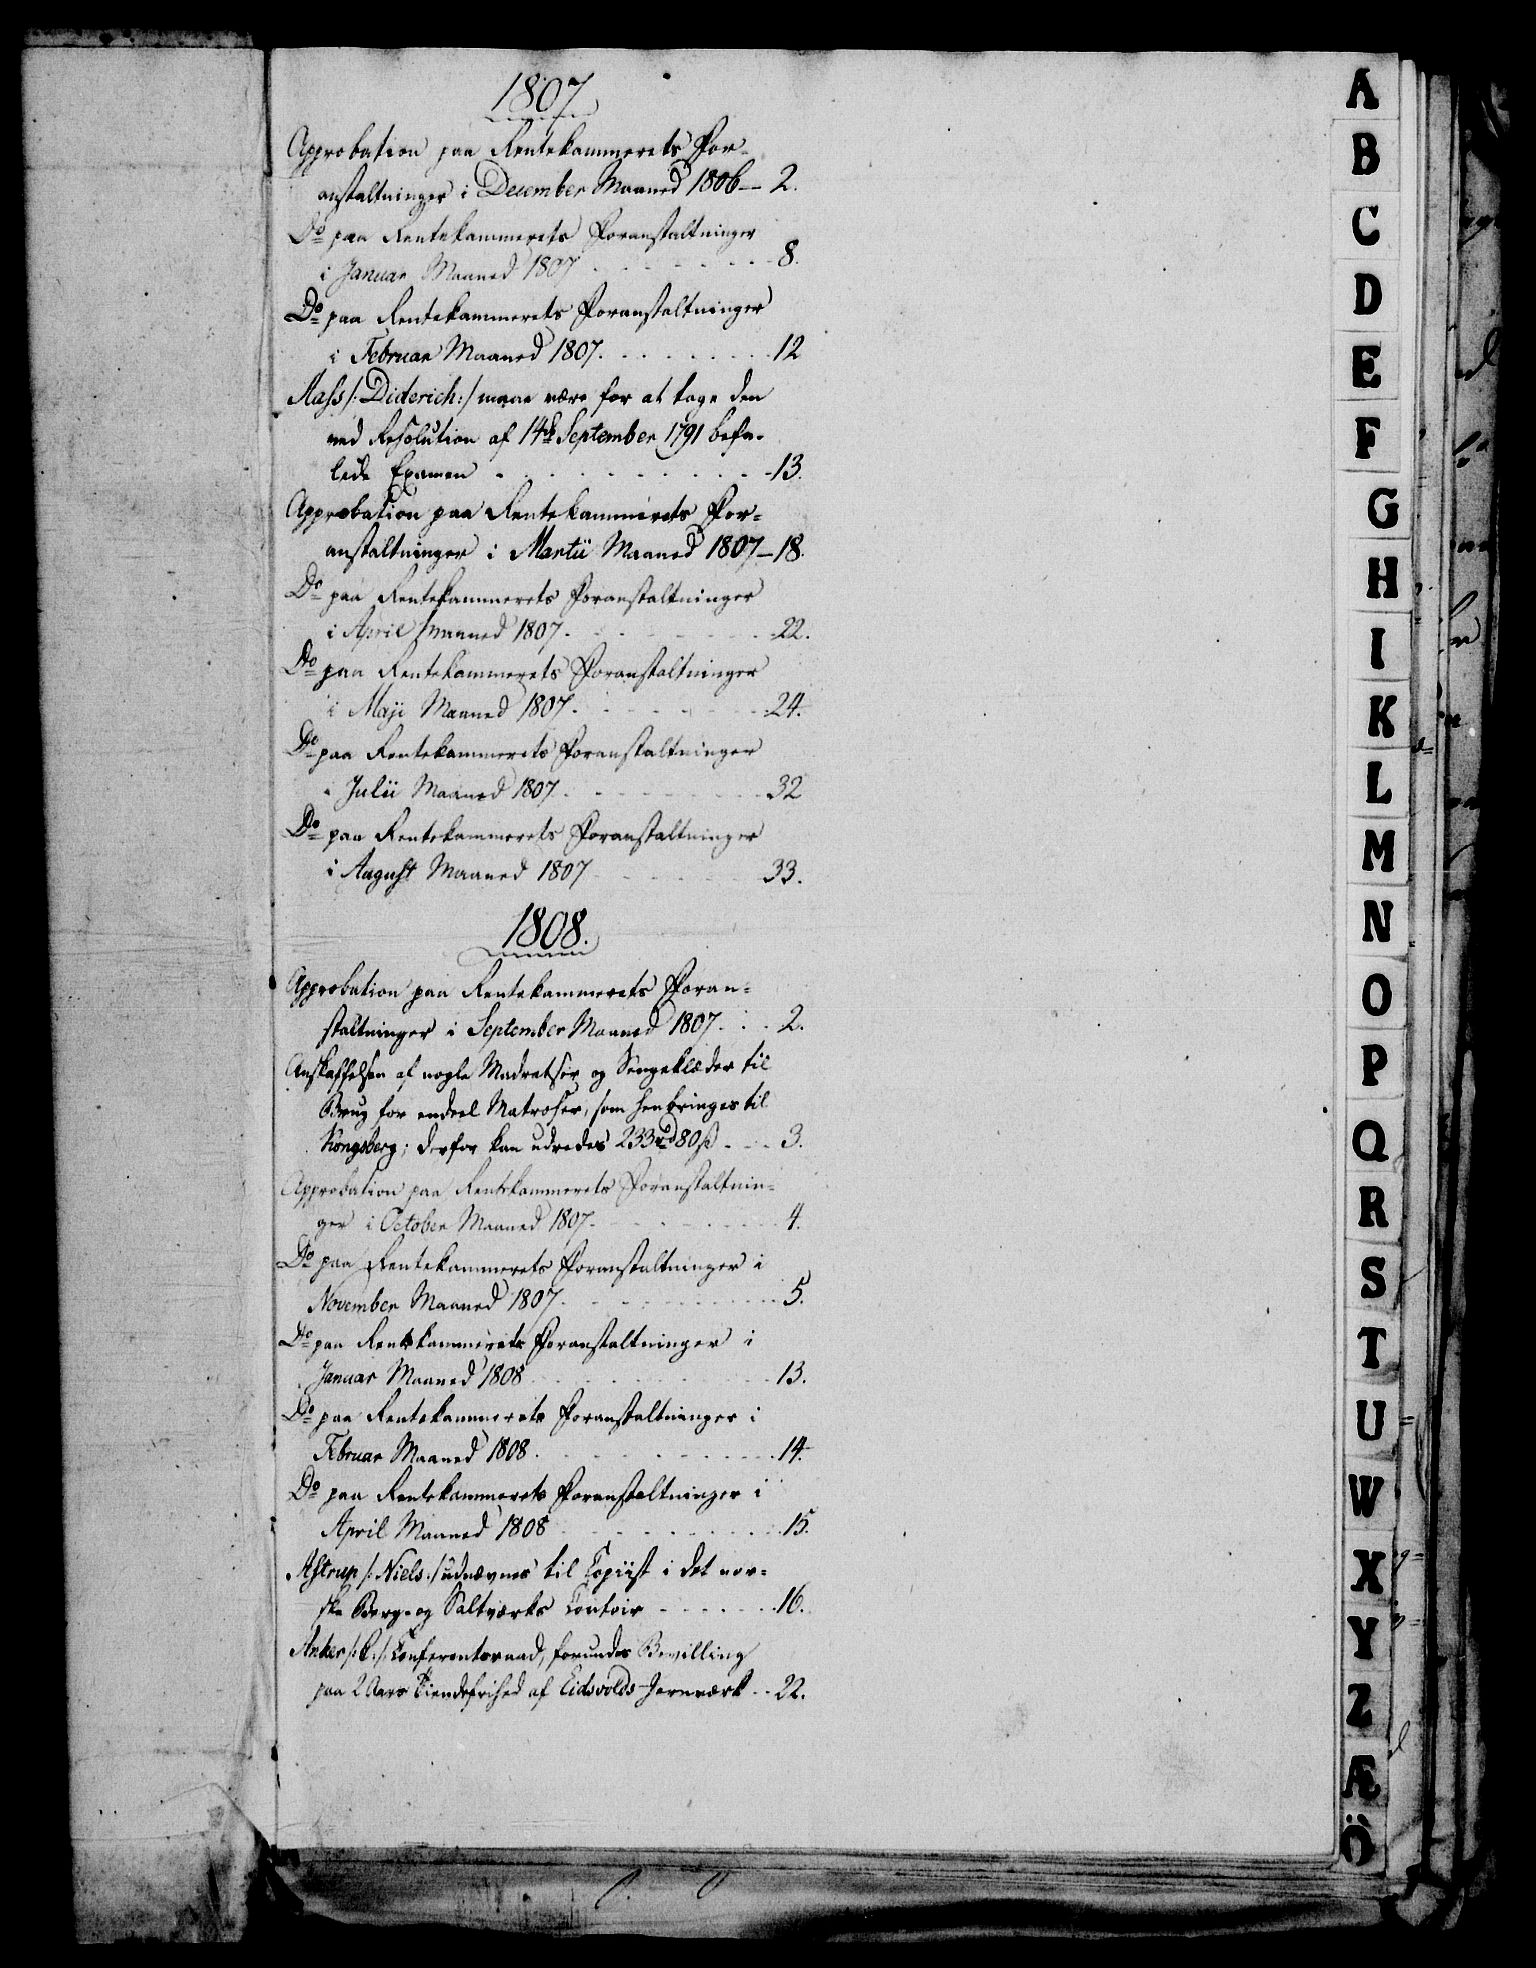 1807
Approbation paa Rentekammerets For-
anstaltninger i December Maaned 1806 — 2.
Do paa Rentekammerets Foranstaltninger
i Januar Maaned 1807 - - - - - - 8.
Do paa Rentekammerets Foranstaltninger
i Februar Maaned 1807. - - - - - - 12
Aass /: Diderich :/ maae være for at tage den
ved Resolution af 14de September 1791 befa-
lede Examen - - - - - - - - 13.
Approbation paa Rentekammerets For-
anstaltninger i Martii Maaned 1807 — 18.
Do paa Rentekammerets Foranstaltninger
i April Maaned 1807. - - - - - - 22.
Do paa Rentekammerets Foranstaltninger
i Maji Maaned 1807. - - - - - - 24.
Do paa Rentekammerets Foranstaltninger
i Julii Maaned 1807. - - - - - - 32
Do paa Rentekammerets Foranstaltninger
i August Maaned 1807 - - - - - - 33.
1808.
Approbation paa Rentekammerets Foran-
staltninger i September Maaned 1807. - - 2.
Anskaffelsen af nogle Madratser og Sengeklæder til
Brug for endeel Matroser, som henbringes til
Kongsberg; derfor kan udredes 233 rd 80 ß - - - 3.
Approbation paa Rentekammerets Foranstaltnin-
ger i October Maaned 1807. - - - - - - 4.
Do paa Rentekammerets Foranstaltninger i
November Maaned 1807. - - - - - - 5.
Do paa Rentekammerets Foranstaltninger i
Januar Maaned 1808 - - - - - - 13.
Do paa Rentekammerets Foranstaltninger i
Februar Maaned 1808. - - - - - - 14.
Do paa Rentekammerets Foranstaltninger i
April Maaned 1808 - - - - - - 15.
Astrup /: Niels :/ udnævnes til Copiist i det nor-
ske Berg- og Saltværks Contoir - - - - - 16.
Anker /: P. :/ Conferentsraad, forundes Bevilling
paa 2 Aars Tiendefrihed af Eidsvolds Jernværk - - 22.
A
B
C
D
E
F
G
H
I
K
L
M
N
O
P
Q
R
S
T
U
W
X
Y
Z
Æ
Ö